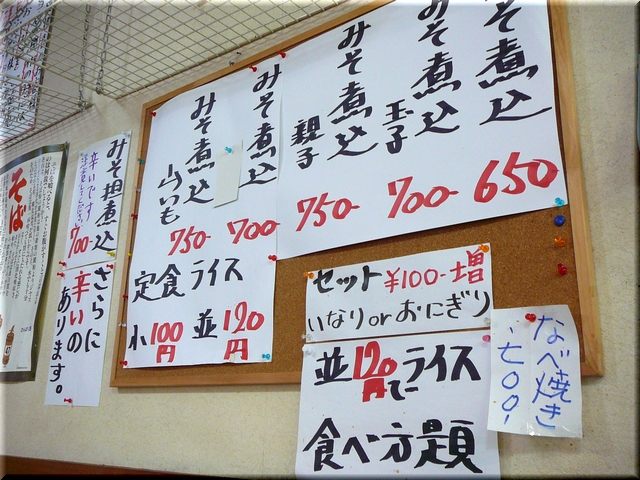 みそ煮込
650
みそ煮込
玉子
700-
みそ煮込
親子
750-
みそ煮込
700-
みそ煮込
山いも
750-
定食 ライス
小100円 並120円
みそ担煮込
辛いです
700-
さらに
辛いの
あります。
そば
セット ¥100-増
いなりorおにぎり
並120円でライス
食べ方題
なべ焼き
・七〇〇-